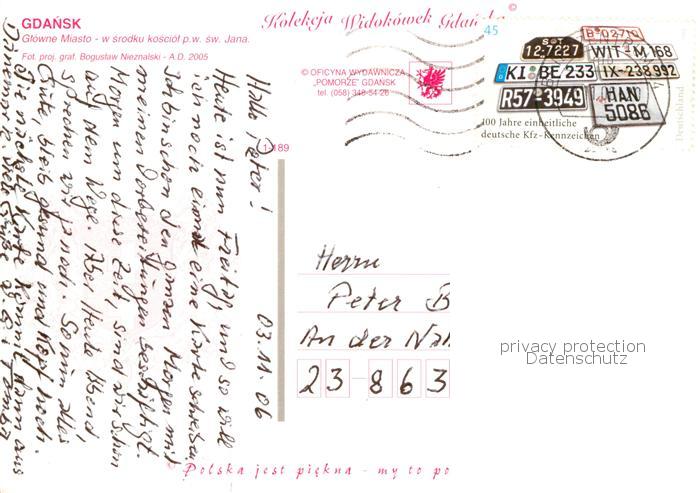 GDAŃSK
Główne Miasto - w środku kościół p.w. św. Jana.
Fot. proj. graf. Bogusław Nieznalski - A.D. 2005
Kolekcja Widokówek Gdańska
©
© OFICYNA WYDAWNICZA
„POMORZE” GDAŃSK
tel. (058) 348-54-26
1-189
45
B·0271
12-7227
WIT-M 168
KI BE 233
IX-238.992
R57 3949
HAN
5086
100 Jahre einheitliche
deutsche Kfz-Kennzeichen
Deutschland
03.11.06
Hallo Peter!
Heute ist nun Freitag, und so will
ich noch einmal eine Karte schreiben.
Ich bin schon den ganzen Morgen mit
meinen Vorbereitungen beschäftigt.
Morgen um diese Zeit, sind wir schon
auf dem Wege. Aber heute Abend
sprechen wir ja noch. So nun alles
Gute, bleib gesund und Kopf hoch.
Die nächste Karte kommt dann aus
Dänemark. Viele Grüße
Herrn
Peter B
An der
23-863
Polska jest piękna - my to po
privacy protection
Datenschutz